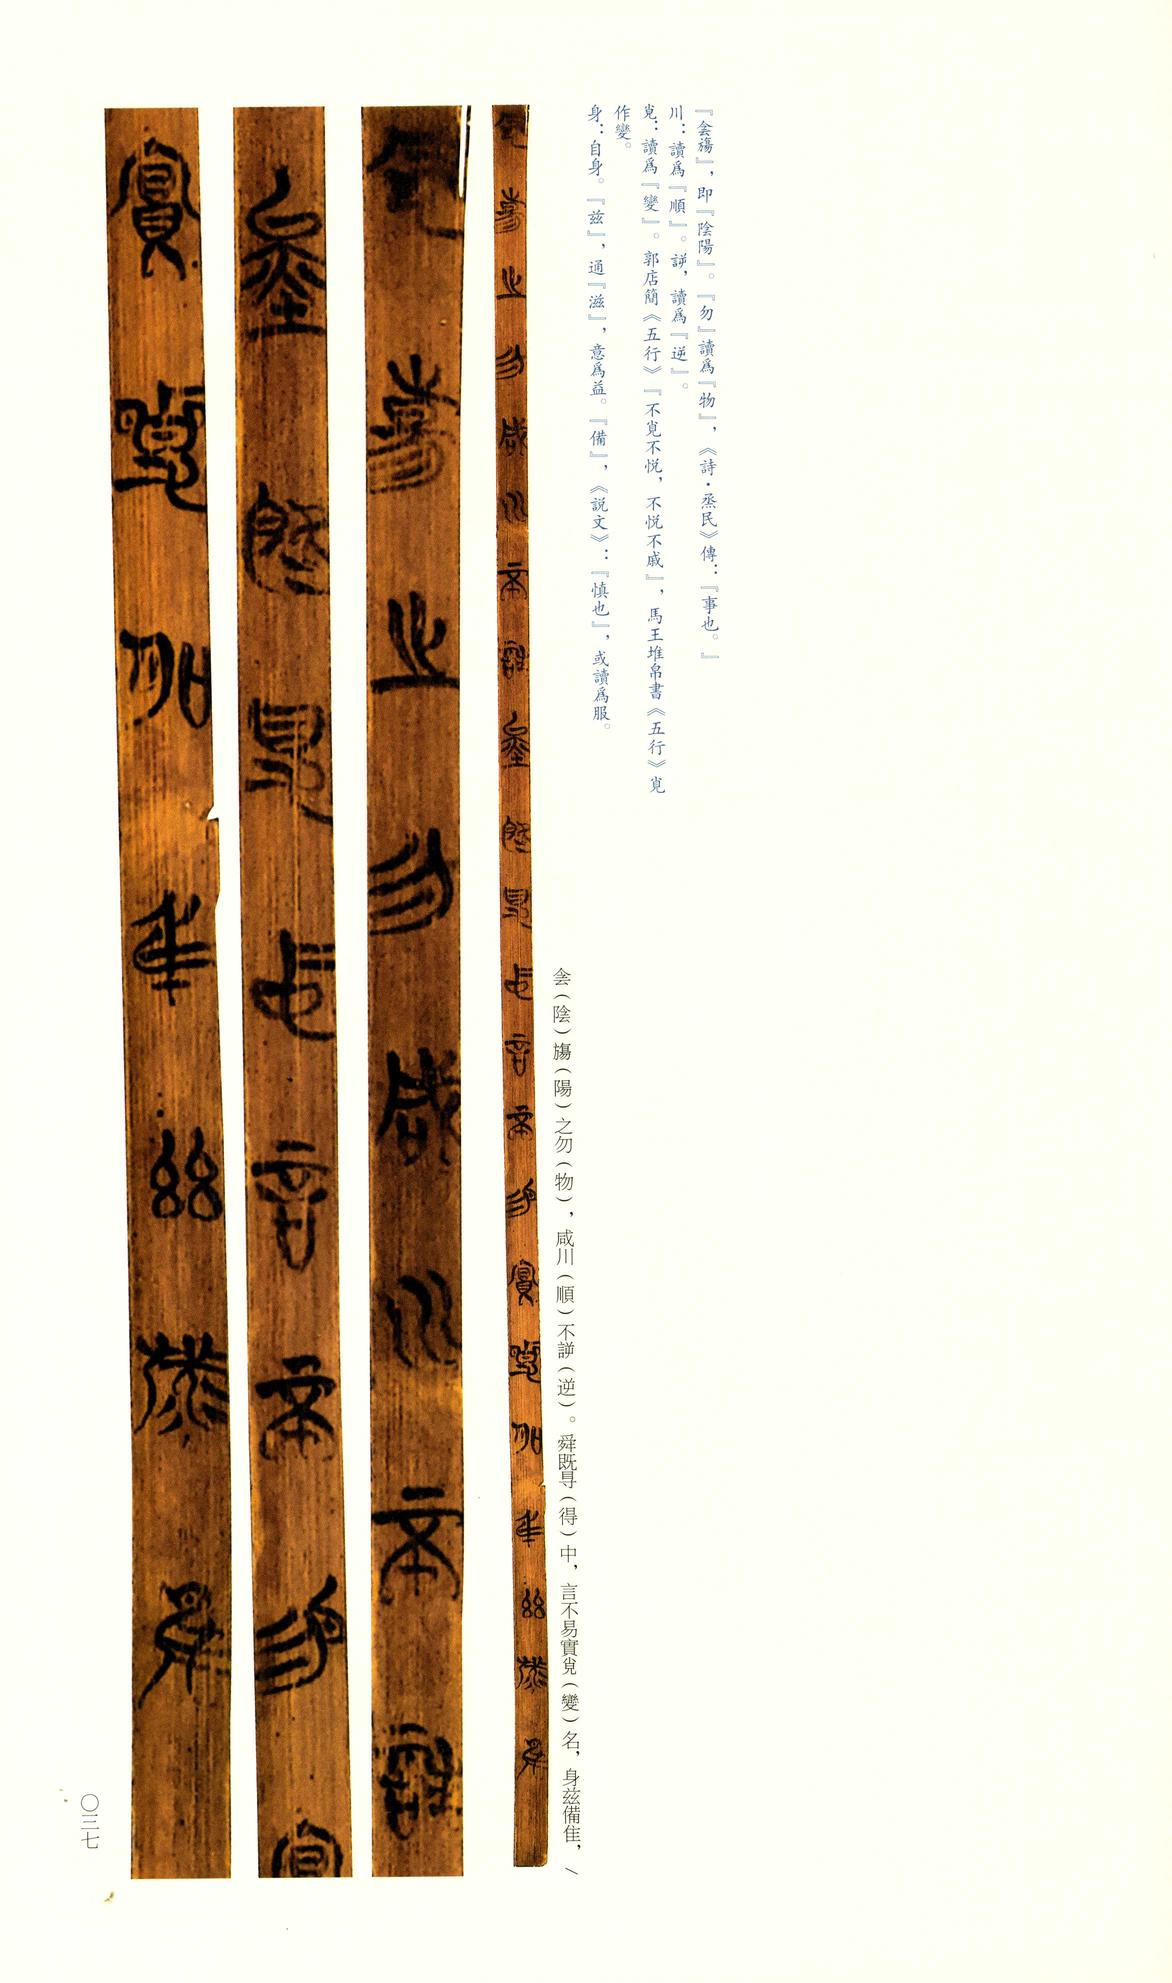 『侌𣄨』，即『陰陽』。『勿』讀爲『物』，《詩·烝民》傳：『事也。』
川：讀爲『順』。誹，讀爲『逆』。
覍：讀爲『變』。郭店簡《五行》『不覍不悦，不悦不戚』，馬王堆帛書《五行》覍
作變。
身：自身。『兹』，通『滋』，意爲益。『備』，《説文》：『慎也』，或讀爲服。
侌（陰）𣄨（陽）之勿（物），咸川（順）不（逆）。舜既㝵（得）中，言不易實覍（變）名，身兹備隹，＼
〇三七